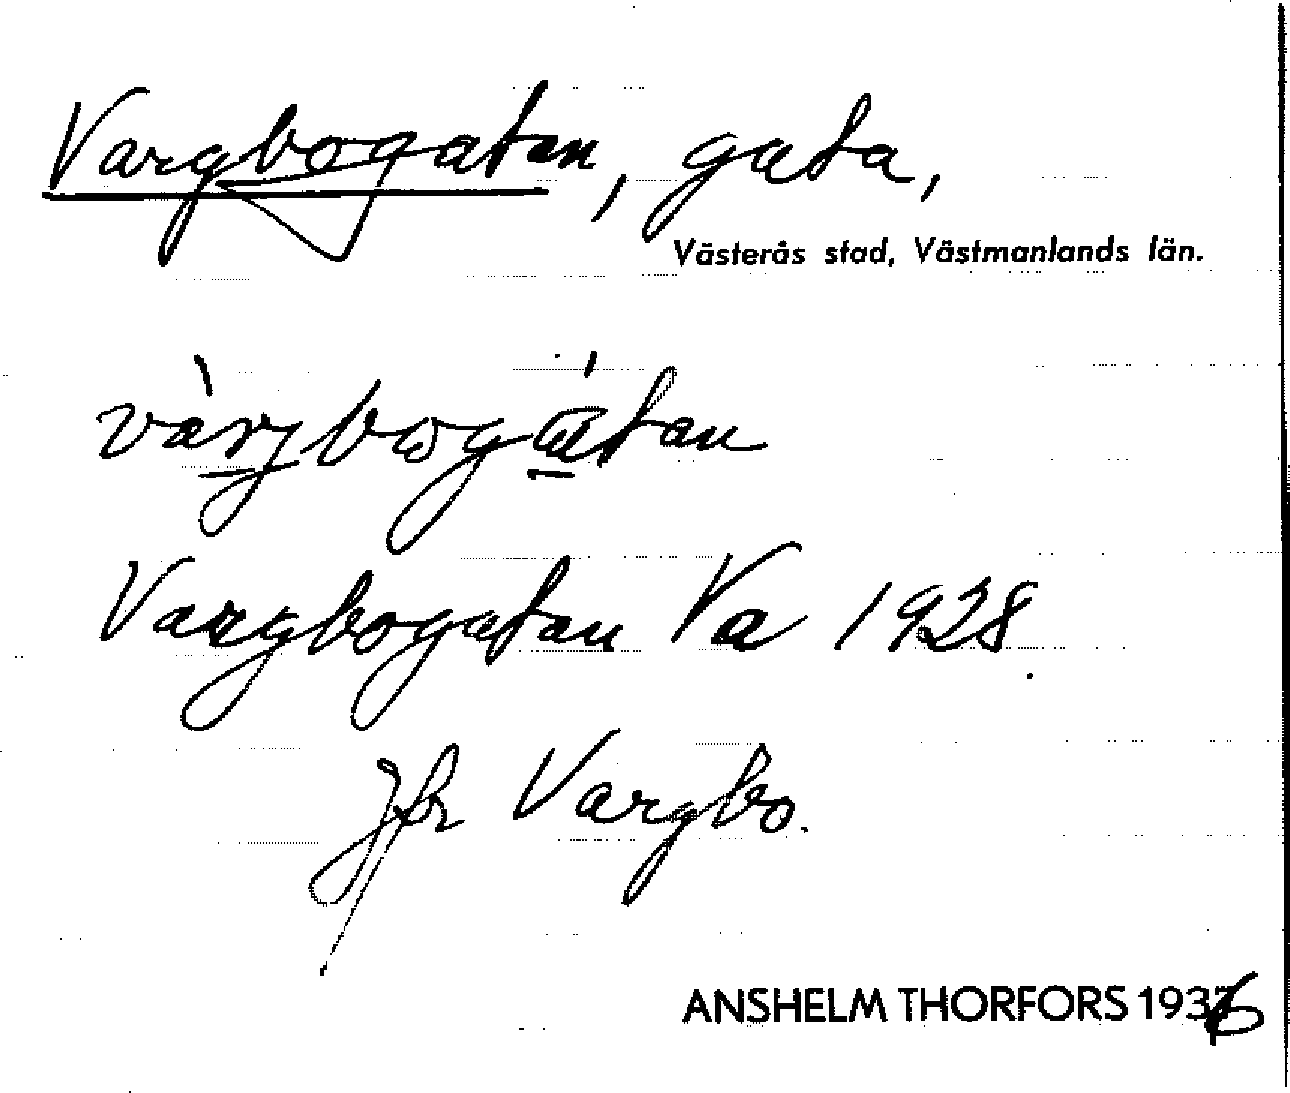 Vargbogatan, gata,
Västerås stad, Västmanlands län.
Vargbogatan Va 1928.
Jfr Vargbo.
ANSHELM THORFORS 1936